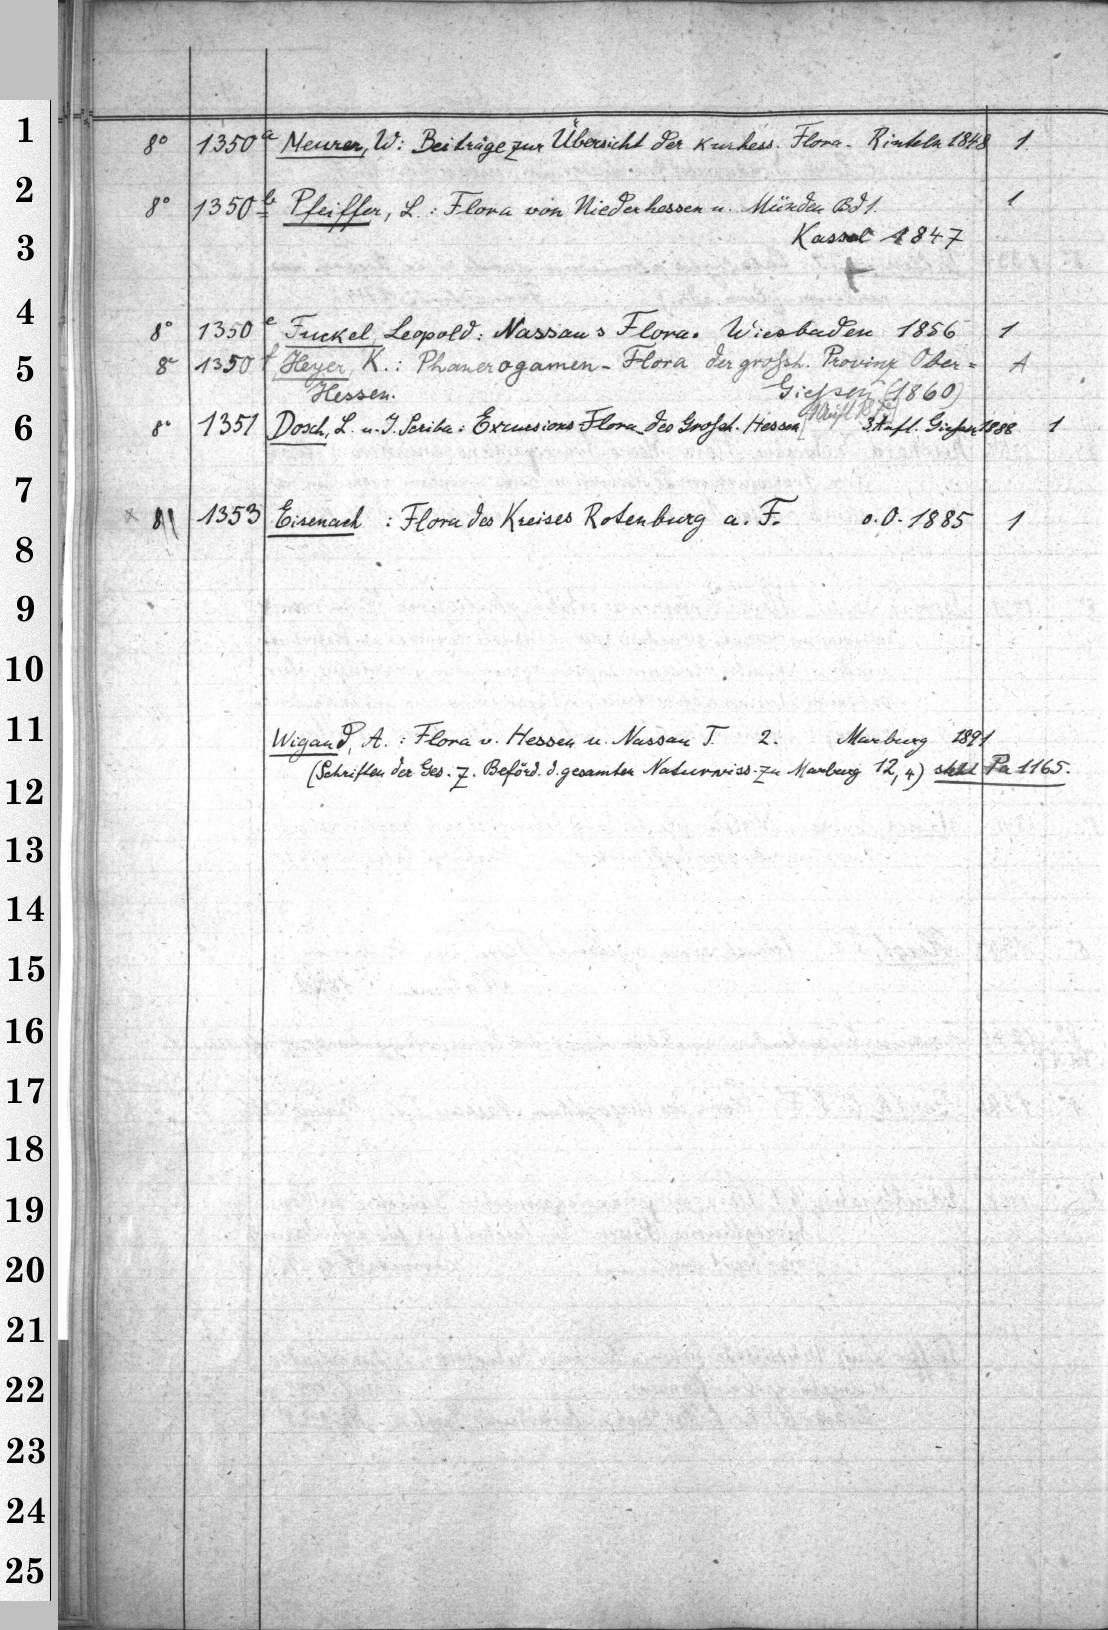 1 8° 1350 a Meurer, W: Beiträge zur Übersicht der Kurhess. Flora. Rinteln 1848 1
2 8° 1350 b Pfeiffer, L.: Flora von Niederhessen u. Münden Bd 1. 1
3 Kassel 1847
4 8° 1350 e Fuckel, Leopold: Nassaus Flora. Wiesbaden 1856 1
5 8° 1350 f Heyer, K.: Phanerogamen-Flora der grossh. Provinz Ober=
Hessen. Giessen (1860)
6 8° 1351 Dosch, L. u. J. Scriba: Excursions Flora des Grossh. Hessen 3. Aufl. Giessen 1888 1
7
8 1353 Eisenach : Flora des Kreises Rotenburg a. F. o.O. 1885 1
9
10
11 Wigand, A.: Flora v. Hessen u. Nassau T. 2. Marburg 1891
12 (Schriften der Ges. z. Beförd. d. gesamten Naturwiss. zu Marburg 12, 4) steht Pa 1165.
13
14
15
16
17
18
19
20
21
22
23
24
25